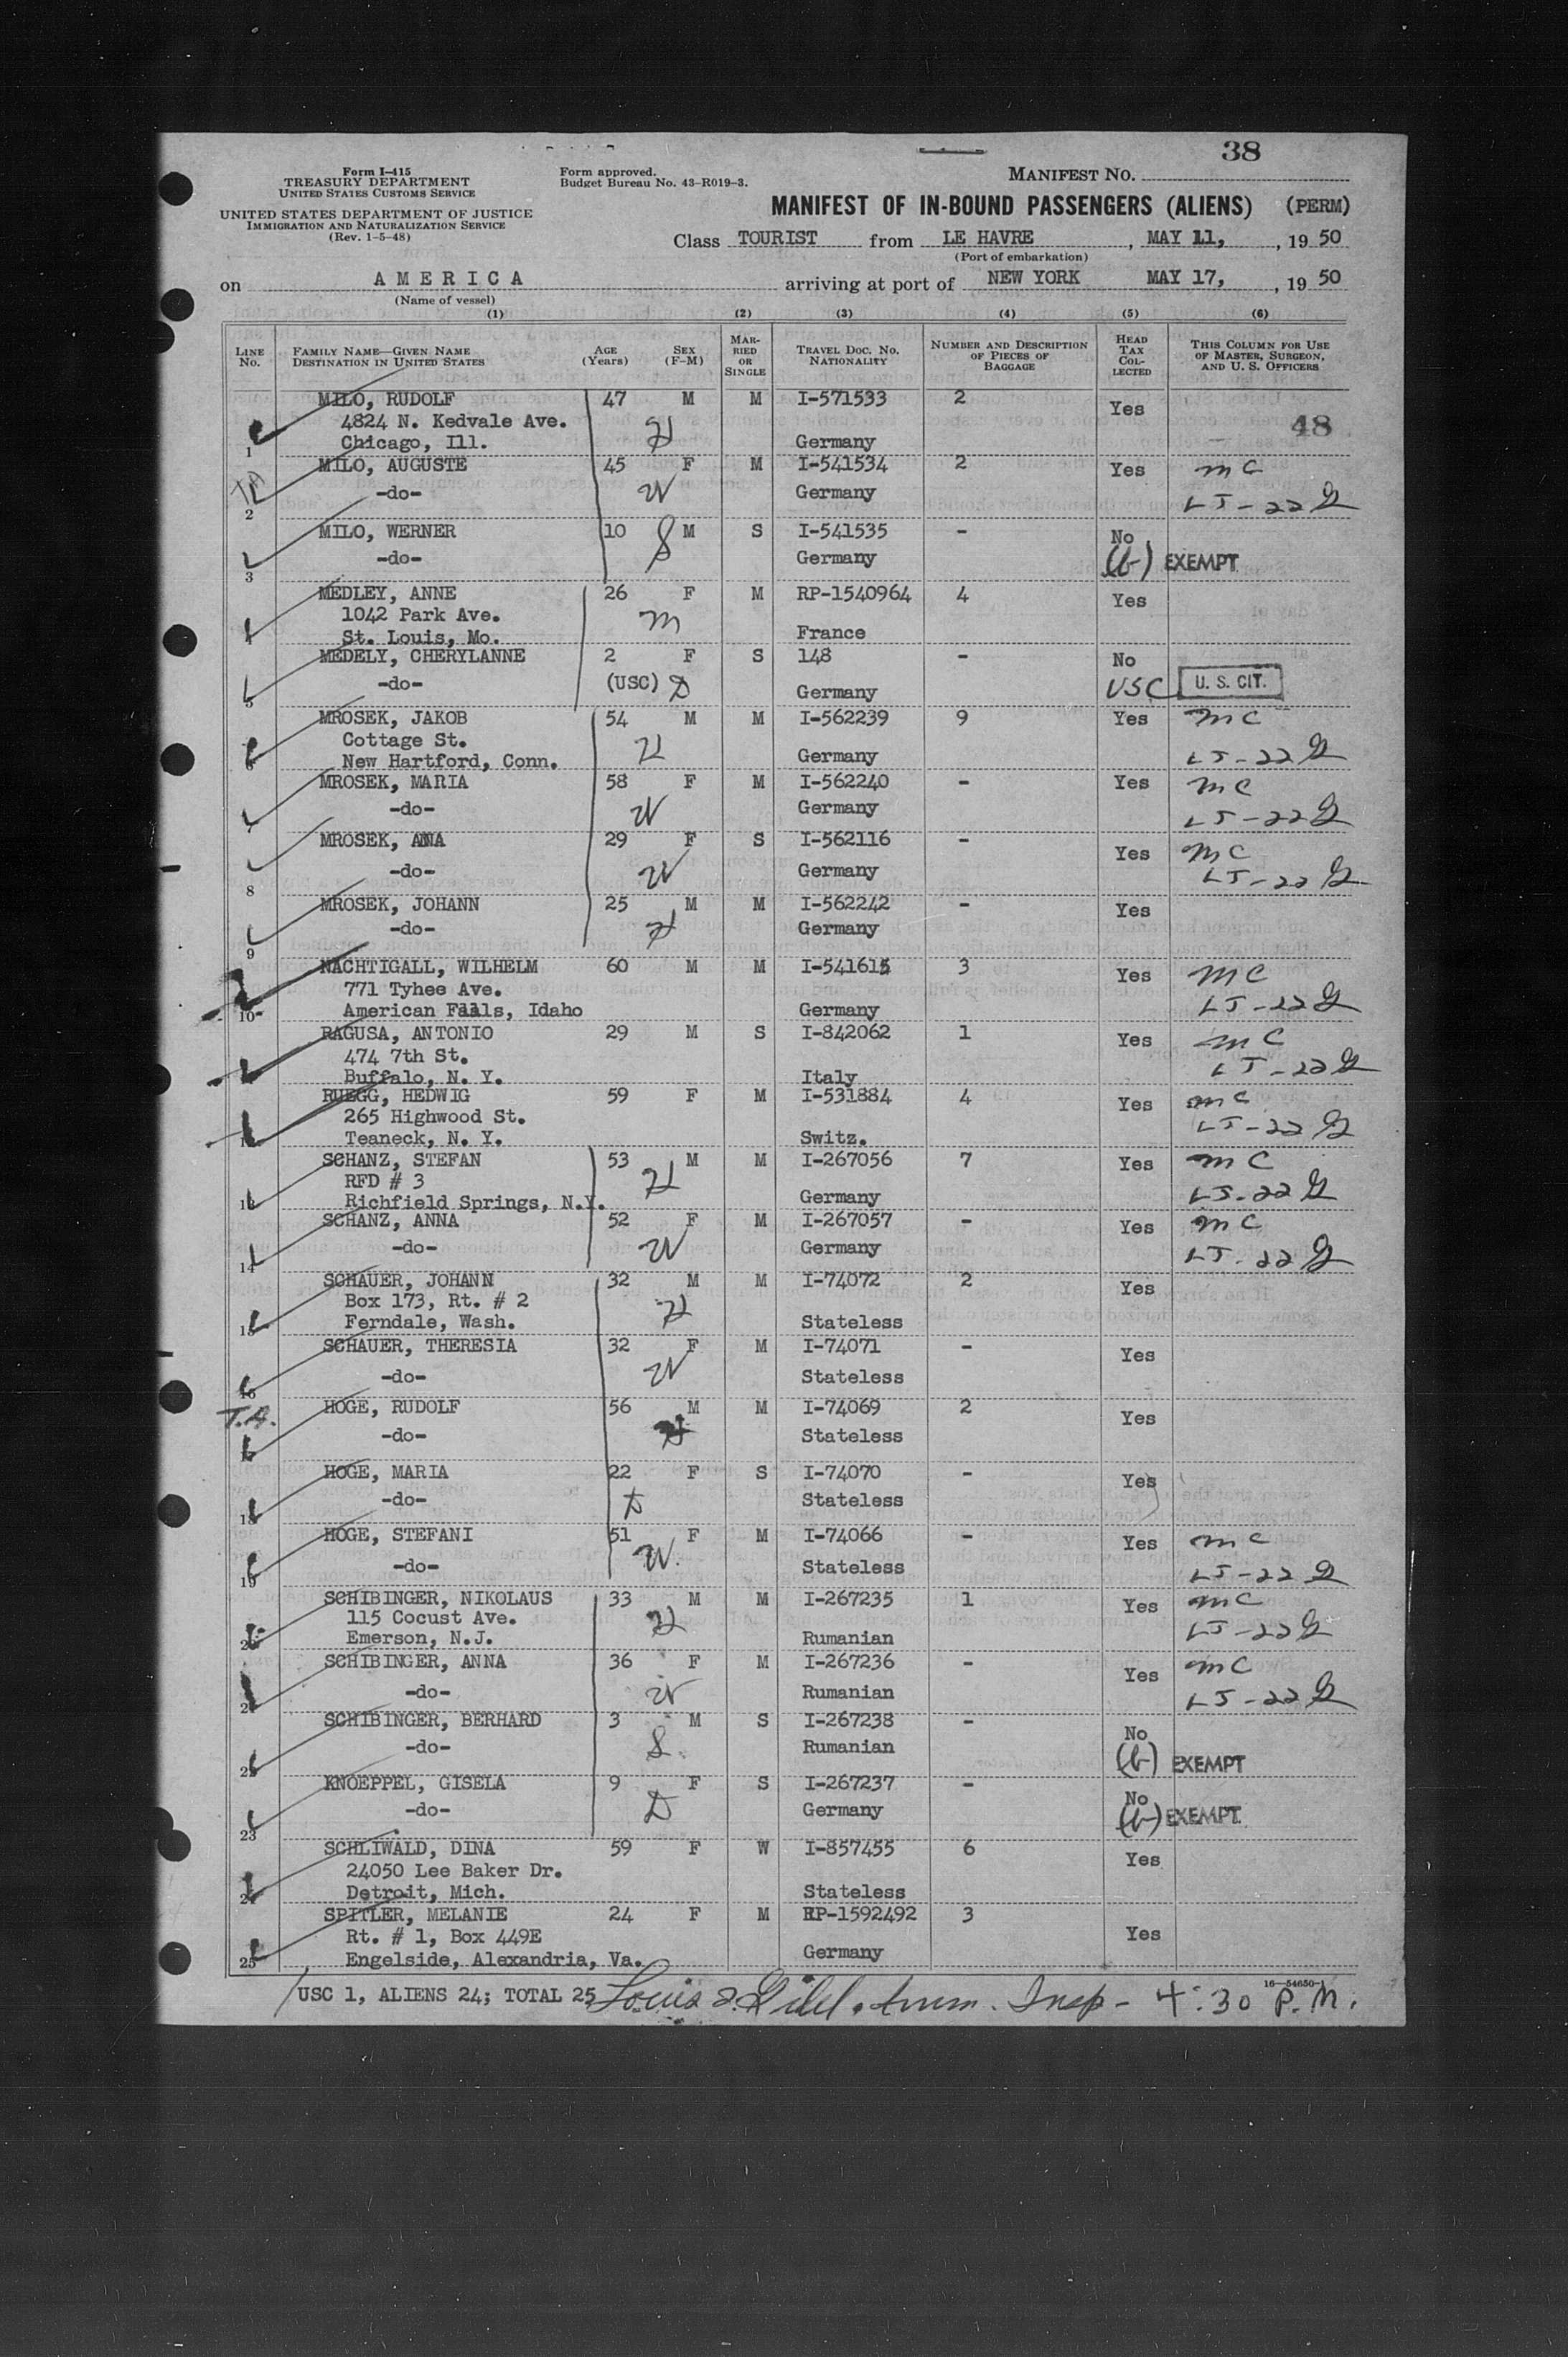 38
Form I-415
TREASURY DEPARTMENT
UNITED STATES CUSTOMS SERVICE
UNITED STATES DEPARTMENT OF JUSTICE
IMMIGRATION AND NATURALIZATION SERVICE
(Rev. 1-5-48)
Form approved.
Budget Bureau No. 43-R019-3.
MANIFEST NO.
MANIFEST OF IN-BOUND PASSENGERS (ALIENS) (PERM)
Class TOURIST from LE HAVRE, MAY 11, 1950
(Port of embarkation)
on AMERICA arriving at port of NEW YORK MAY 17, 1950
(Name of vessel)
(1) (2) (3) (4) (5) (6)
LINE No. FAMILY NAME—GIVEN NAME DESTINATION IN UNITED STATES AGE (Years) SEX (F-M) MARRIED OR SINGLE TRAVEL DOC. NO. NATIONALITY NUMBER AND DESCRIPTION OF PIECES OF BAGGAGE HEAD TAX COLLECTED THIS COLUMN FOR USE OF MASTER, SURGEON, AND U. S. OFFICERS
MILO, RUDOLF 47 M M I-571533 2 Yes
4824 N. Kedvale Ave. H 48
1 Chicago, Ill. Germany
MILO, AUGUSTE 45 F M I-541534 2 Yes MC
-do- W Germany LJ-22
2
MILO, WERNER 10 S M S I-541535 - No
-do- Germany (b) EXEMPT
3
MEDLEY, ANNE 26 F M RP-1540964 4 Yes
1042 Park Ave. M
4 St. Louis, Mo. France
MEDELY, CHERYLANNE 2 F S 148 - No
-do- (USC) D Germany USC U. S. CIT.
5
MROSEK, JAKOB 54 M M I-562239 9 Yes MC
Cottage St. H
6 New Hartford, Conn. Germany LJ-22
MROSEK, MARIA 58 F M I-562240 - Yes MC
-do- W Germany LJ-22
7
MROSEK, ANNA 29 F S I-562116 - Yes MC
-do- W Germany LJ-22
8
MROSEK, JOHANN 25 M M I-562242 - Yes
-do- H Germany
9
NACHTIGALL, WILHELM 60 M M I-541615 3 Yes MC
771 Tyhee Ave.
10 American Falls, Idaho Germany LJ-22
RAGUSA, ANTONIO 29 M S I-842062 1 Yes MC
474 7th St.
Buffalo, N. Y. Italy LJ-22
RUEGG, HEDWIG 59 F M I-531884 4 Yes MC
265 Highwood St.
12 Teaneck, N. Y. Switz. LJ-22
SCHANZ, STEFAN 53 M M I-267056 7 Yes MC
RFD # 3 H
13 Richfield Springs, N.Y. Germany LJ-22
SCHANZ, ANNA 52 F M I-267057 - Yes MC
-do- W Germany LJ-22
14
SCHAUER, JOHANN 32 M M I-74072 2 Yes
Box 173, Rt. # 2 H
15 Ferndale, Wash. Stateless
SCHAUER, THERESIA 32 F M I-74071 - Yes
-do- W Stateless
16
T.A. HOGE, RUDOLF 56 M M I-74069 2 Yes
-do- Stateless
HOGE, MARIA 22 F S I-74070 - Yes
-do- D Stateless
18
HOGE, STEFANI 51 F M I-74066 - Yes MC
-do- W Stateless LJ-22
19
SCHIBINGER, NIKOLAUS 33 M M I-267235 1 Yes MC
115 Cocust Ave. H
20 Emerson, N.J. Rumanian LJ-22
SCHIBINGER, ANNA 36 F M I-267236 - Yes MC
-do- W Rumanian LJ-22
21
SCHIBINGER, BERHARD 3 M S I-267238 - No
-do- S Rumanian (b) EXEMPT
22
KNOEPPEL, GISELA 9 F S I-267237 - No
-do- D Germany (b) EXEMPT
23
SCHLIWALD, DINA 59 F W I-857455 6 Yes
24050 Lee Baker Dr.
24 Detroit, Mich. Stateless
SPITLER, MELANIE 24 F M RP-1592492 3 Yes
Rt. # 1, Box 449E
25 Engelside, Alexandria, Va. Germany
16—54650-1
USC 1, ALIENS 24; TOTAL 25 Louis Imm. Insp - 4:30 P.M.